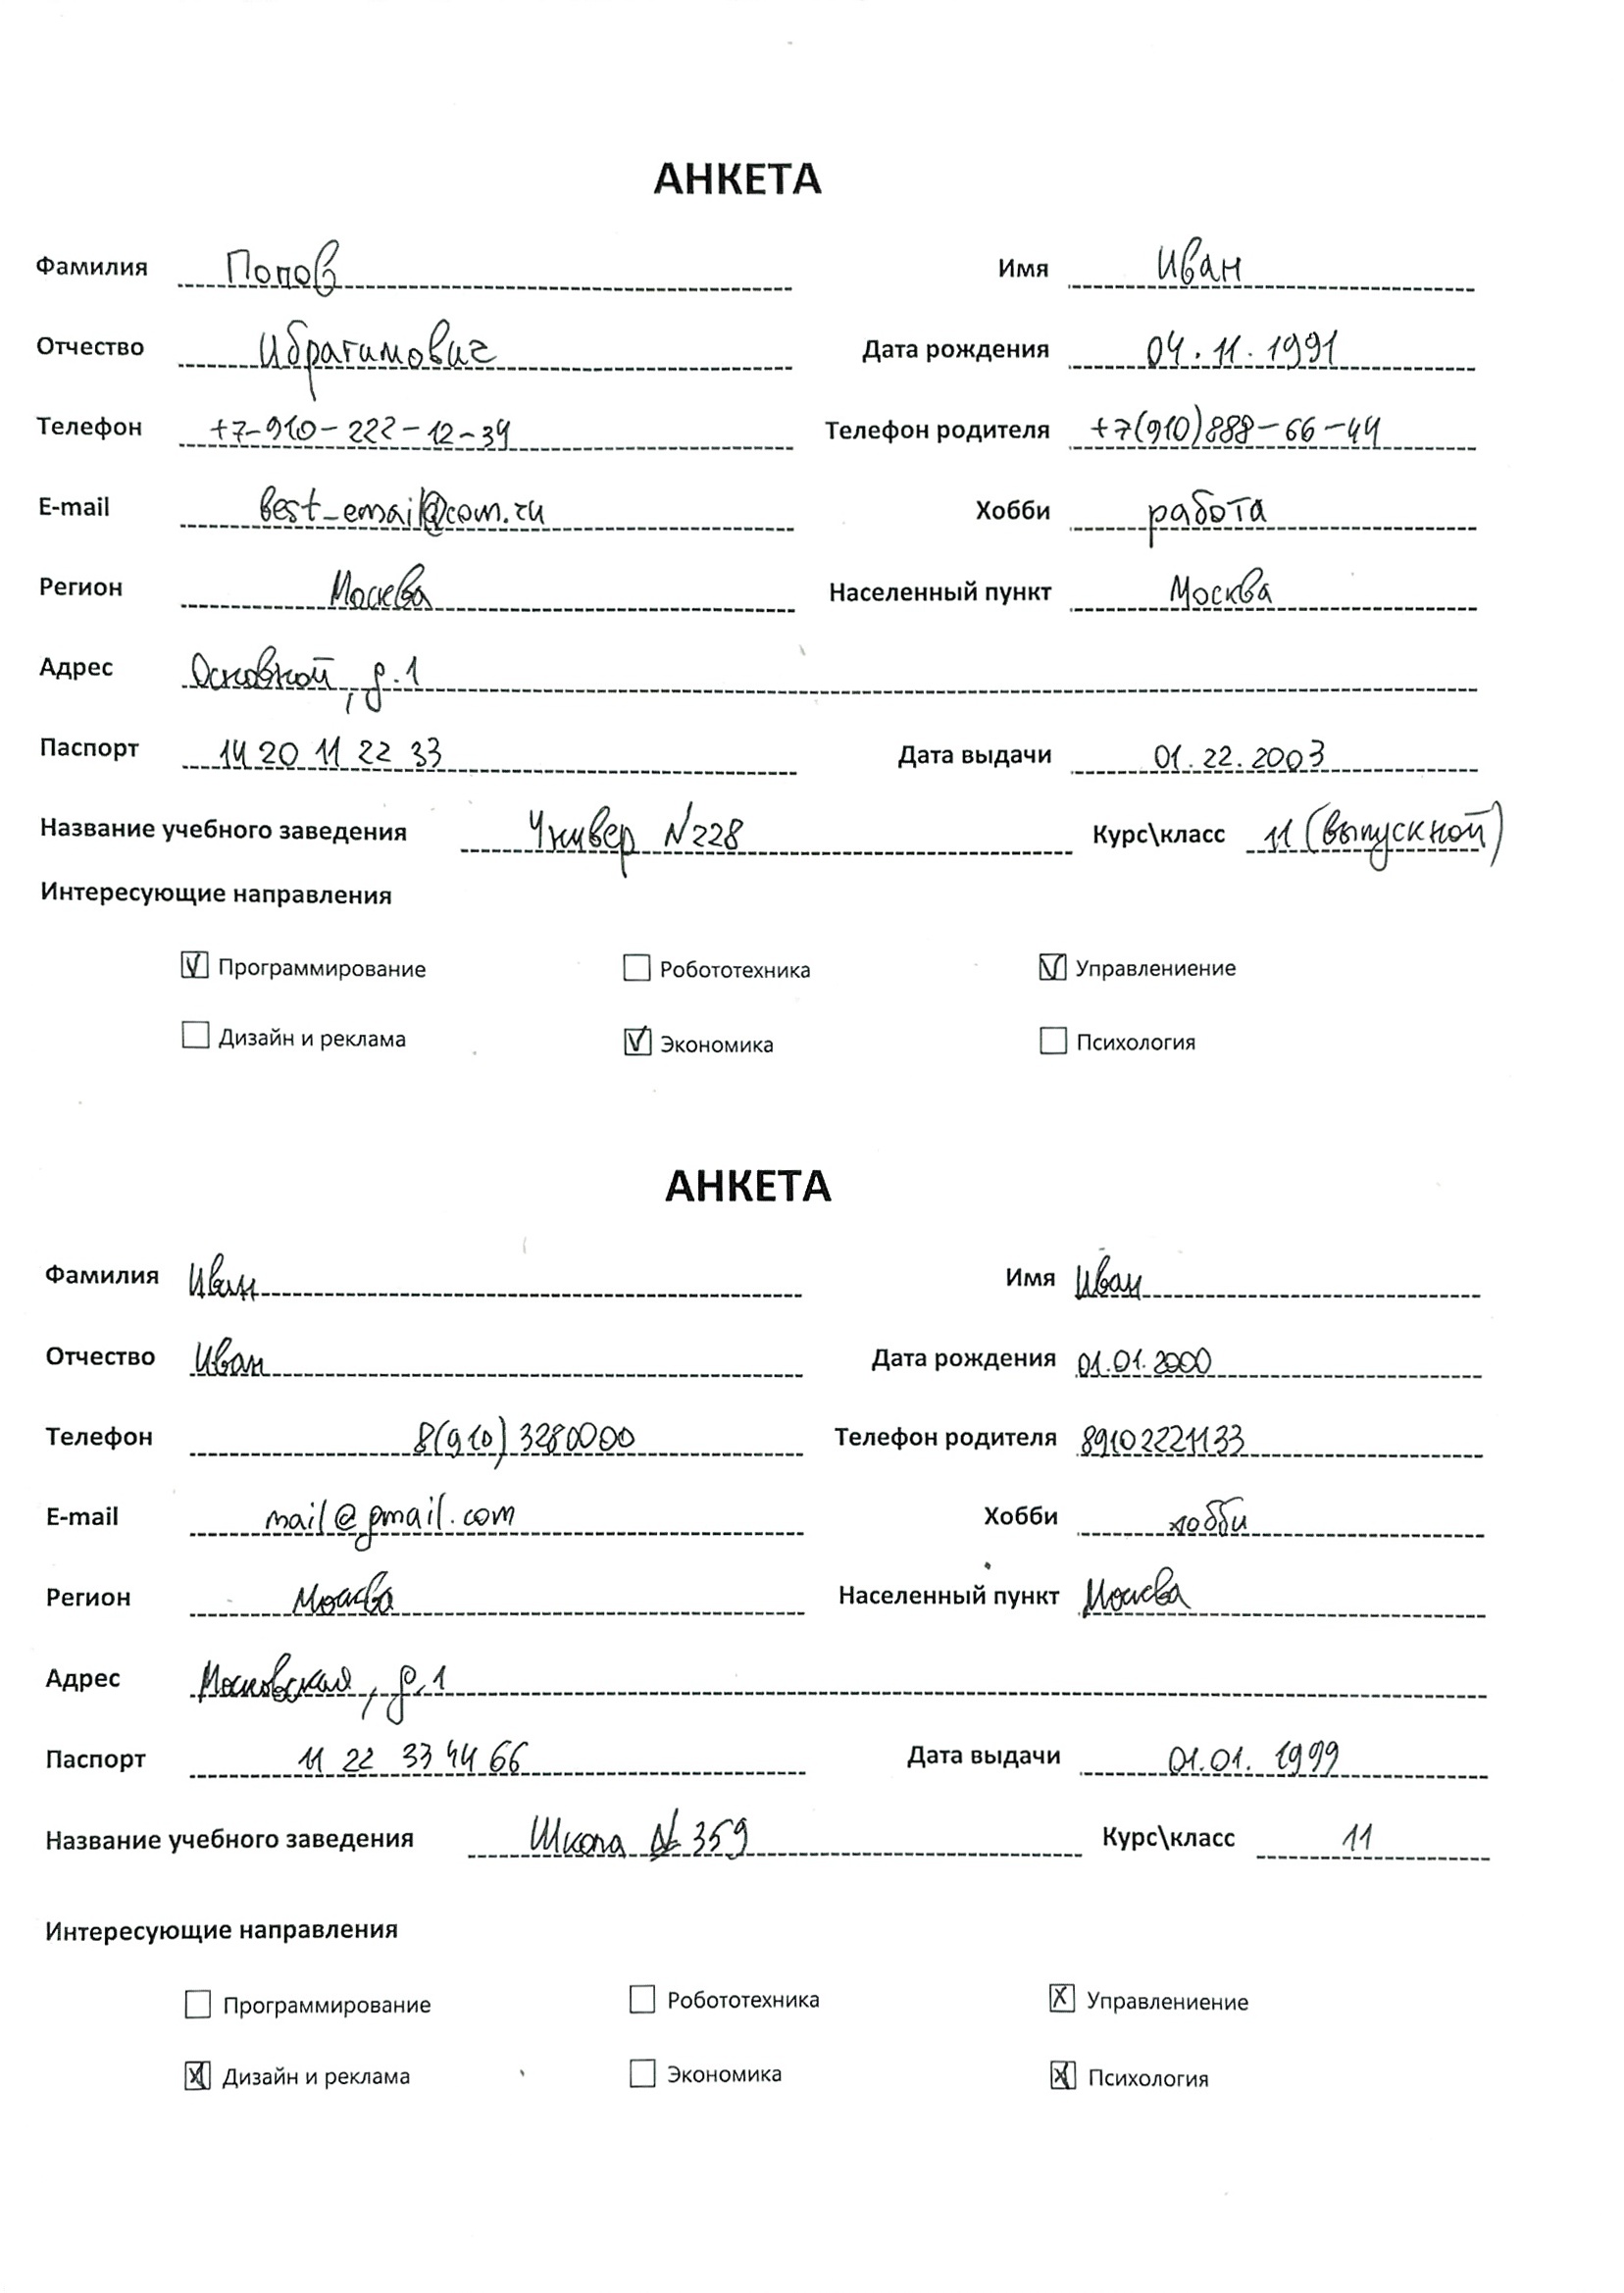 АНКЕТА
Фамилия Попов Имя Иван
Отчество Ибрагимович Дата рождения 04.11.1991
Телефон +7-910-222-12-39 Телефон родителя +7(910)888-66-44
E-mail best_email@com.ru Хобби работа
Регион Москва Населенный пункт Москва
Адрес Основной, д.1
Паспорт 14 20 11 22 33 Дата выдачи 01.22.2003
Название учебного заведения Универ N228 Курс\класс 11 (выпускной)
Интересующие направления
Программирование Робототехника Управлениение
Дизайн и реклама Экономика Психология
АНКЕТА
Фамилия Иван Имя Иван
Отчество Иван Дата рождения 01.01.2000
Телефон 8(910)3280000 Телефон родителя 89102221133
E-mail mail@gmail.com Хобби хобби
Регион Москва Населенный пункт Москва
Адрес Московская, д.1
Паспорт 11 22 33 44 66 Дата выдачи 01.01.1999
Название учебного заведения Школа № 359 Курс\класс 11
Интересующие направления
Программирование Робототехника Управлениение
Дизайн и реклама Экономика Психология